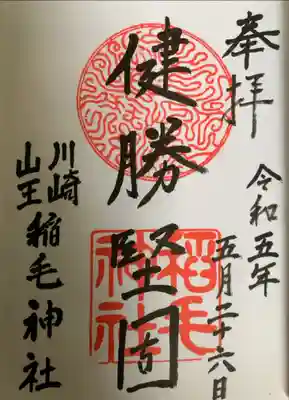 奉拝
令和五年
五月二十六日
健勝堅固
稲毛神社
川崎
山王稲毛神社